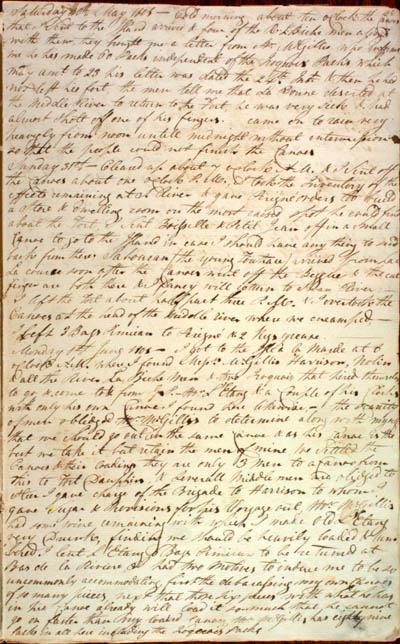 Saturday 30th May 1808 — Cold morning about ten oClock the
that I sent to the Island arrived & four of the R. La Biche men
with them, they brought me a letter from Mr. McGillis who informs
me he has made 80 Packs independent of the Iroquois Packs which
may amt to 23 his letter was dated the 25th Inst & then he had
not left his fort. the men tell me that La Bonne deserted at
the Middle River to return to the Fort, he was very Sick & had
almost shott off one of his fingers. came on to rain very
heavyly from noon untill midnight without intermission
so that the people could not finish the Canoes
Sunday 31st — Cleared up about 7 oClock A.M. & I sent off
the Canoes about one oClock P.M. & took the Inventory of the
effects remaining at River & gave Aigne orders to build
a Store & Dwelling room on the most raised spot he could find
about the Fort. I sent & Petit Jean off in a Small
Canoe to go to the Island in case I should have any thing to send
back from there. the young arrived from
soon after the Canoes went off the Begue & the cut
finger are both here & will return to River
I left the Fort about half past three P.M. & overtook the
Canoes at the head of the Middle river where we encamped,
I left 3 Bags Pimican to Aigne & 2 Kegs grease.
Monday 1st June 1808 — I got to the at 6
oClock A.M. where I found Messrs. McGillis Harrison,
& all the River La Biche Men & two Iroquois that hired themselves
to go & come to & from & a Couple of his
with only his own Canoe I found here likewise — the quantity
of men obliged Mr McGillis to determine along with myself
that we should go out in the same Canoe & as his Canoe is the
best we take it but retain the men of mine we settled the
Canoes & their loading they are only 5 men to a Canoe from
this to Fort Dauphin & Severall Middle men are obliged to
I gave charge of the Brigade to Harrison to whom I
gave Sugar & Provisions for his Voyage out, Mr McGillis
had some wine remaining with which I made Old
very Drunk, finding we should be heavily loaded &
I sent 2 Bags Pimican to be returned at
Bas de la Riviere I had two Motives to induce me to be so
uncommonly accommodating first the debarassing my own
of so many pieces next that those six pieces with what he has
in his Canoe already will load it so much that he cannot
go on faster than my loaded Canoes. Mr McGillis has eighty nine
Packs in all here including the Iroquois Packs